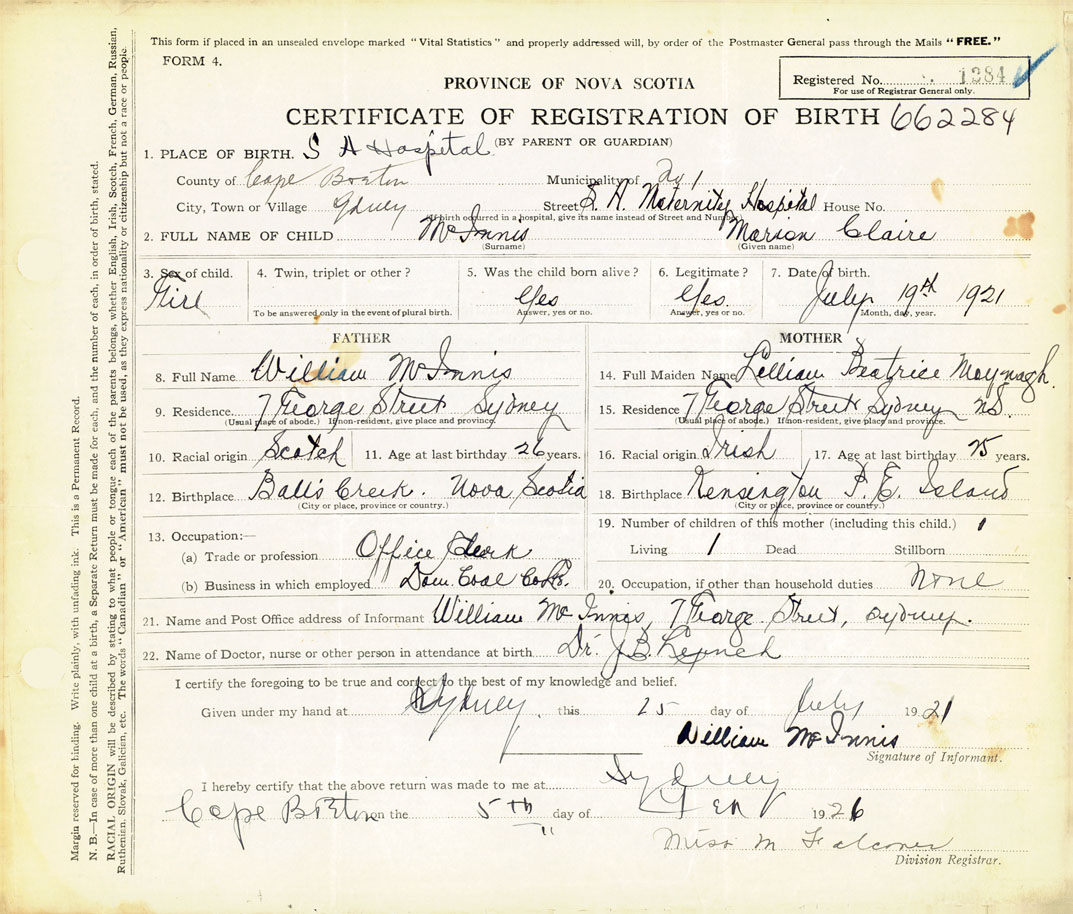 This form if placed in an unsealed envelope marked "Vital Statistics" and properly addressed will, by order of the Postmaster General pass through the Mails "FREE."
FORM 4.
Registered No. 1284
For use of Registrar General only.
PROVINCE OF NOVA SCOTIA
CERTIFICATE OF REGISTRATION OF BIRTH 662284
(BY PARENT OR GUARDIAN)
1. PLACE OF BIRTH. S A Hospital
County of Cape Breton Municipality of
City, Town or Village Sydney Street S. A. Maternity Hospital House No.
(If birth occurred in a hospital, give its name instead of Street and Number)
2. FULL NAME OF CHILD McInnis Marion Claire
(Surname) (Given name)
3. Sex of child. 4. Twin, triplet or other? 5. Was the child born alive? 6. Legitimate? 7. Date of birth.
Girl Yes Yes. July 19th 1921
To be answered only in the event of plural birth. Answer, yes or no. Answer, yes or no. Month, day, year.
FATHER MOTHER
8. Full Name William McInnis 14. Full Maiden Name Lillian Beatrice Moynagh.
9. Residence 7 George Street Sydney 15. Residence 7 George Street Sydney N.S.
(Usual place of abode.) If non-resident, give place and province. (Usual place of abode.) If non-resident, give place and province.
10. Racial origin Scotch 11. Age at last birthday 26 years. 16. Racial origin Irish 17. Age at last birthday 25 years.
12. Birthplace Ball's Creek. Nova Scotia 18. Birthplace Kensington P. E. Island
(City or place, province or country.) (City or place, province or country.)
13. Occupation:— 19. Number of children of this mother (including this child.) 1
(a) Trade or profession Office Clerk Living 1 Dead Stillborn
(b) Business in which employed Dom. Coal Co. 20. Occupation, if other than household duties None
21. Name and Post Office address of Informant William McInnis, 7 George Street, Sydney.
22. Name of Doctor, nurse or other person in attendance at birth Dr. J. B. Lynch
I certify the foregoing to be true and correct to the best of my knowledge and belief.
Given under my hand at Sydney, this 25 day of July 1921
William McInnis
Signature of Informant.
I hereby certify that the above return was made to me at Sydney
Cape Breton on the 5th day of 1926
Miss M Falconer
Division Registrar.
Margin reserved for binding. Write plainly, with unfading ink. This is a Permanent Record.
N. B.—In case of more than one child at a birth, a Separate Return must be made for each, and the number of each, in order of birth, stated.
RACIAL ORIGIN will be described by stating to what people or tongue each of the parents belongs, whether English, Irish, Scotch, French, German, Russian,
Ruthenian, Slovak, Galician, etc. The words "Canadian" or "American" must not be used, as they express nationality or citizenship but not a race or people.